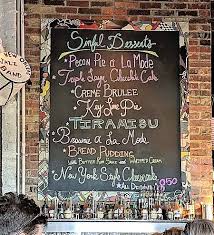 Sinful Desserts
Pecan Pie a La Mode
Triple Layer Chocolate Cake
Creme Brulee
Key Lime Pie
Tiramisu
Banana a La Mode
Bread Pudding
with Butter Rum Sauce and Whipped Cream
New York Style Cheesecake
All Desserts 9.50